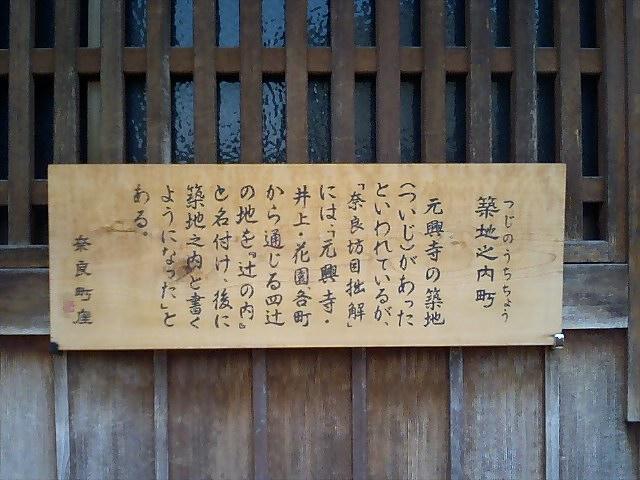 つじのうちちょう
築地之内町
元興寺の築地
(ついじ)があった
といわれているが、
「奈良坊目拙解」
には、「元興寺・
井上・花園、各町
から通じる四辻
の地を『辻の内』
と名付け、後に
築地之内と書く
ようになった」と
ある。
奈良町座